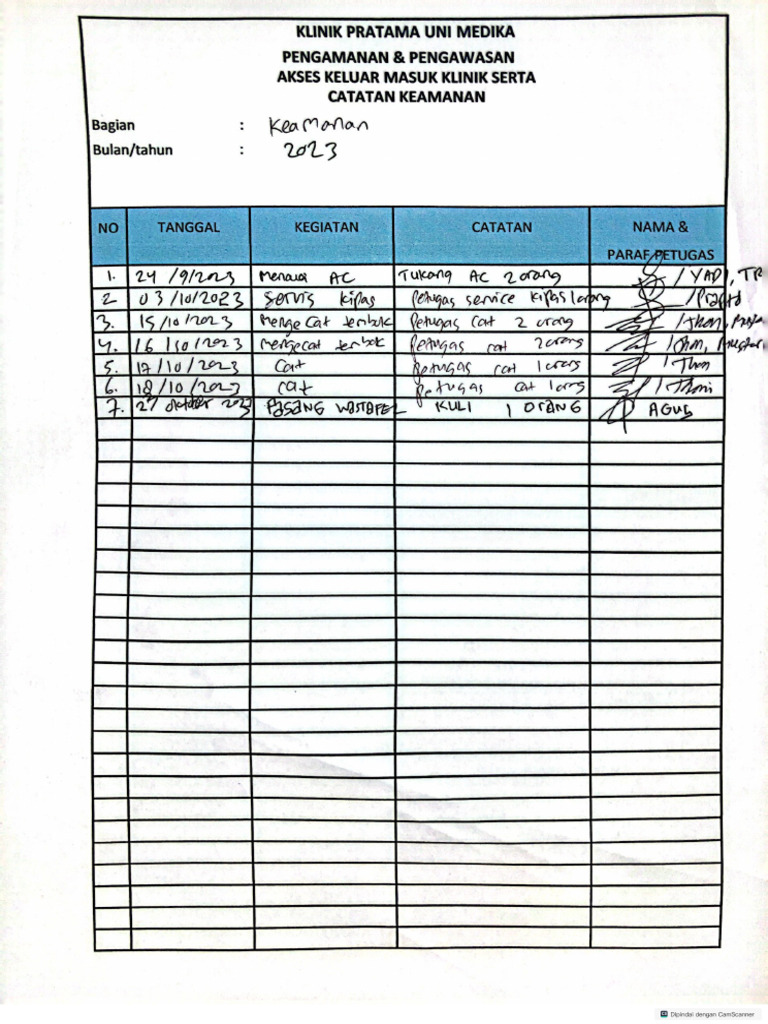 KLINIK PRATAMA UNI MEDIKA
PENGAMANAN & PENGAWASAN
AKSES KELUAR MASUK KLINIK SERTA
CATATAN KEAMANAN
Bagian : Keamanan
Bulan/tahun : 2023
NO TANGGAL KEGIATAN CATATAN NAMA &
PARAF PETUGAS
1. 24 /9/2023 AC Tukang AC 2 orang / YADI, TR
2 03 /10/2023 Servis kipas petugas service kipas 1 orang
3. 15/10/2023 Mengecat tembok Petugas cat 2 orang
4. 16/10/2023 mengecat tembok petugas cat 2 orang
5. 17/10/2023 Cat petugas cat 1 orang
6. 18/10/2023 cat petugas cat 1 orang
7. 27 oktober 2023 PASANG WASTAFEL KULI 1 ORANG AGUS
Dipindai dengan CamScanner